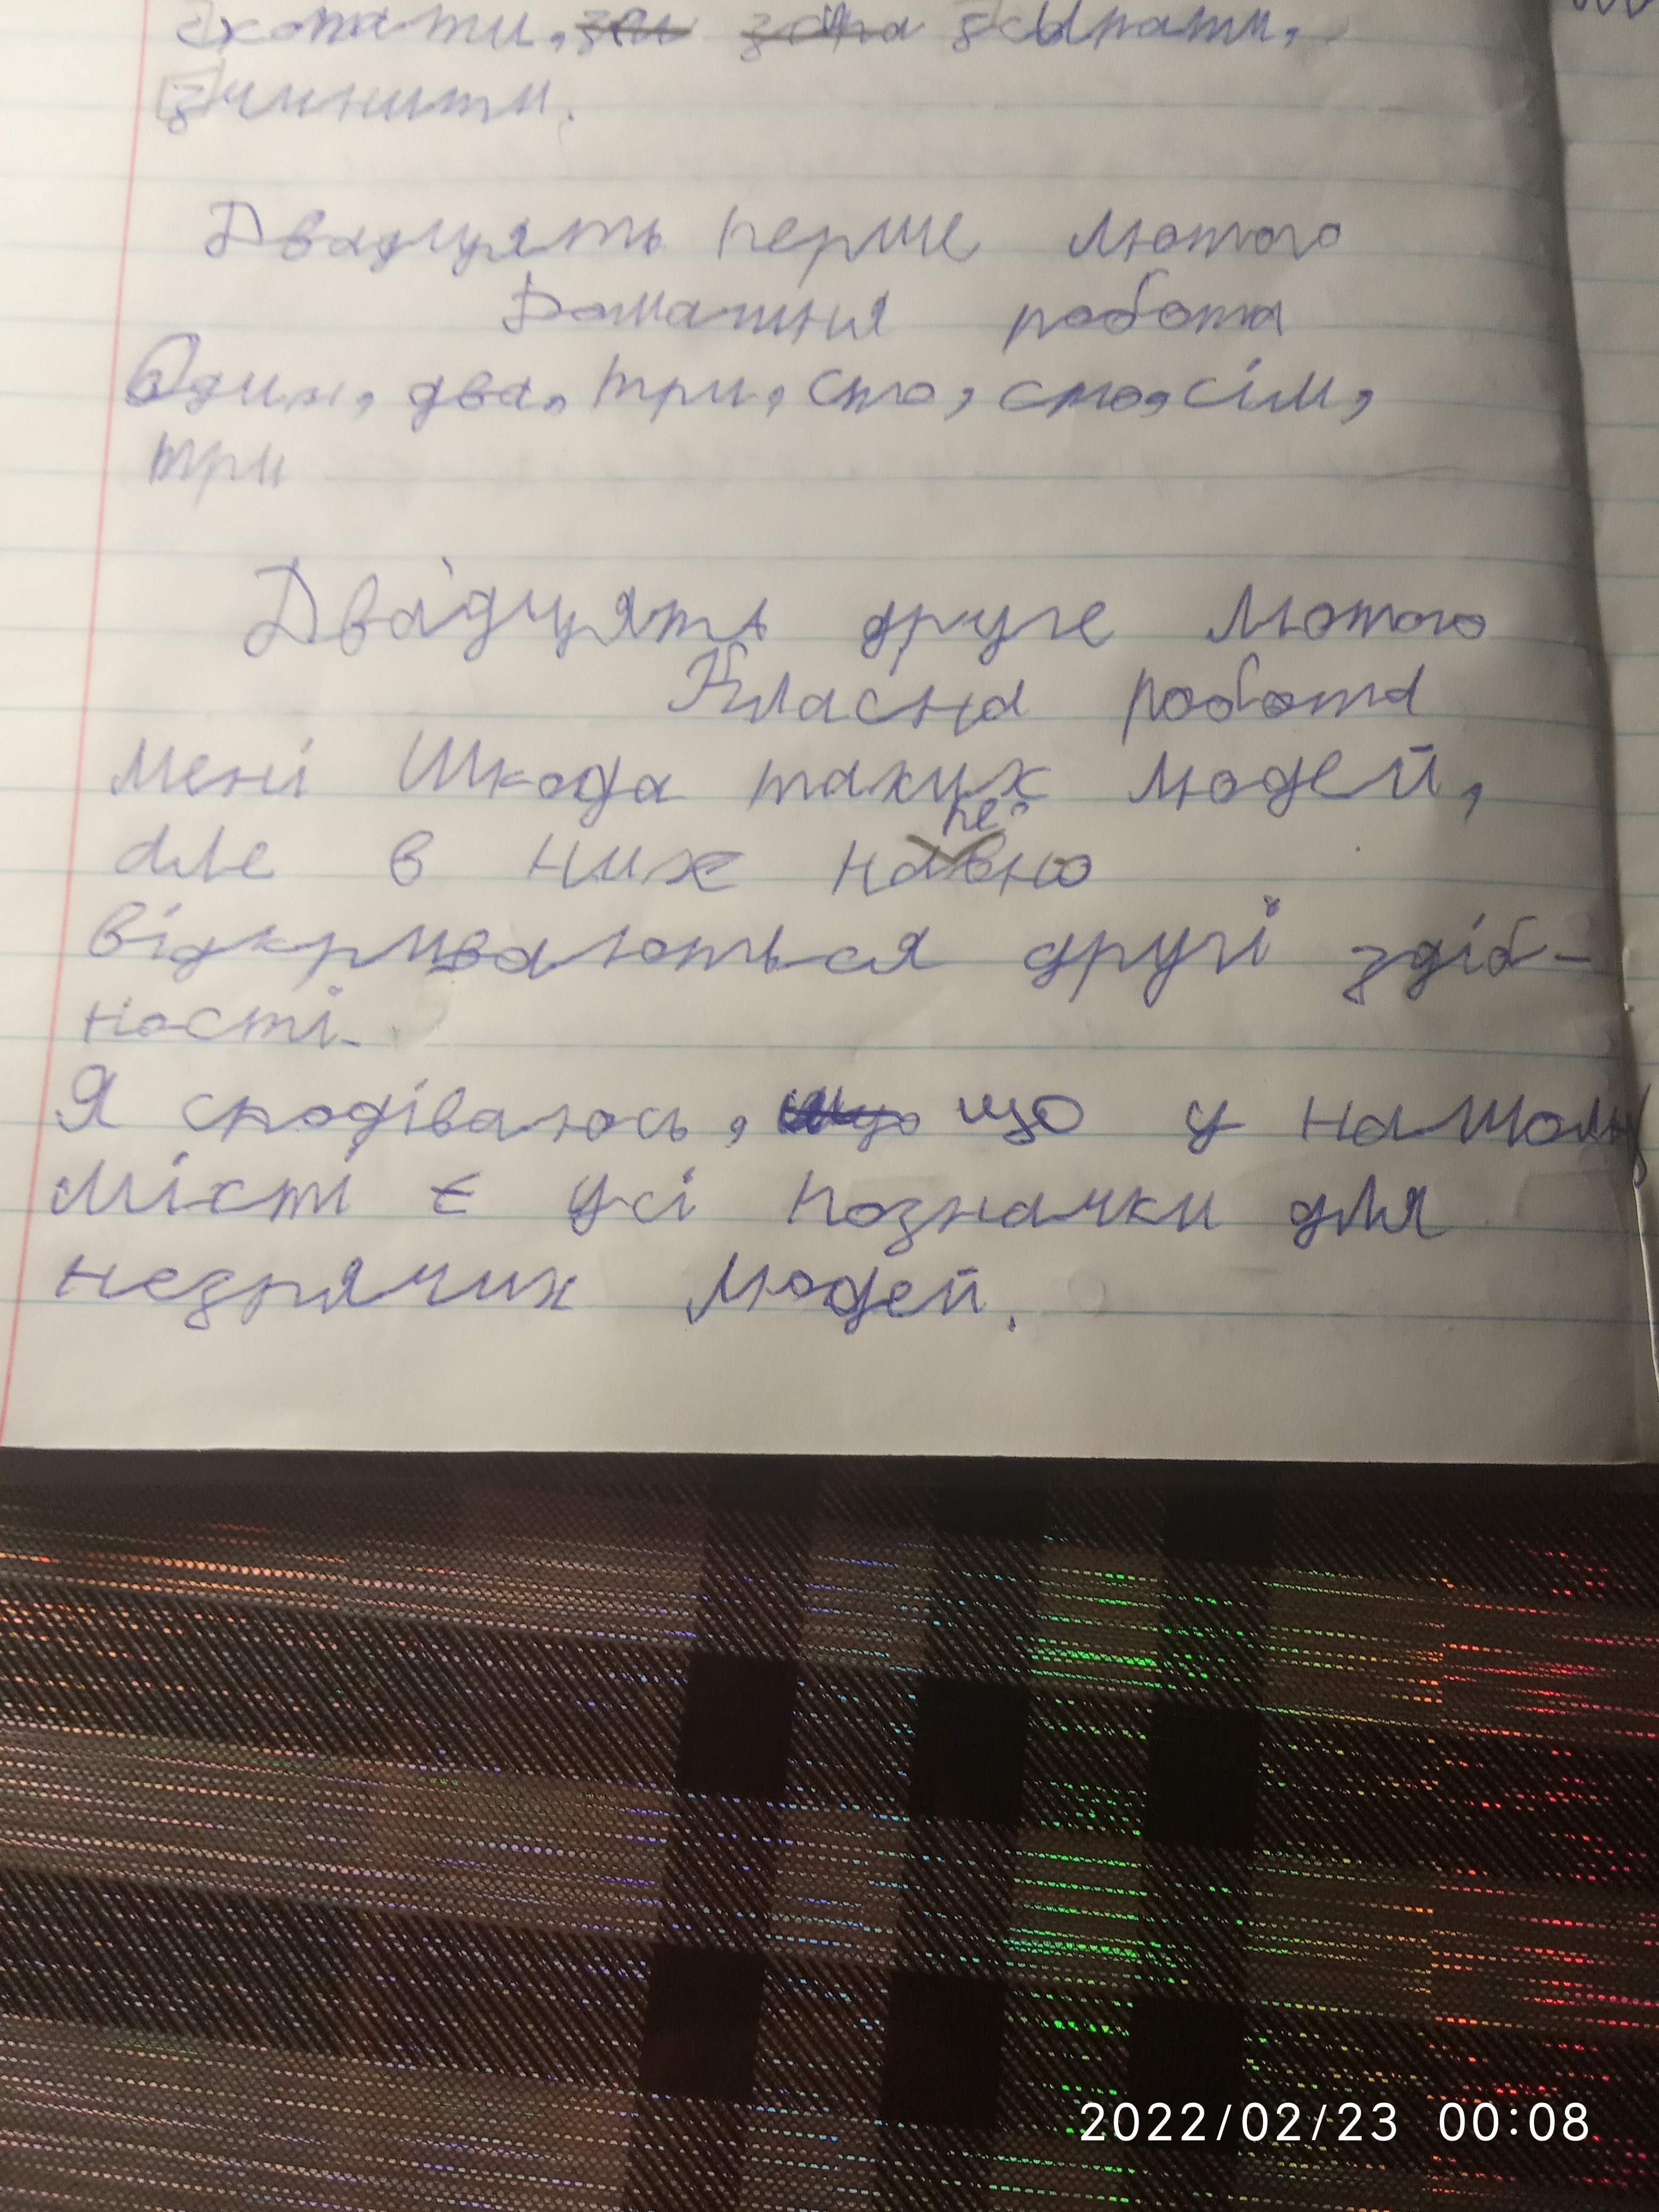 схопити, зсипати,
зчинити.
Двадцять перше лютого
Домашня робота
Один, два, три, сто, сто, сім,
три
Двадцять друге лютого
Класна робота
Мені шкода таких людей,
але в них напевно
відкриваються другі здіб-
ності.
Я сподіваюсь, що у нашому
місті є усі позначки для
незрячих людей.
2022/02/23 00:08